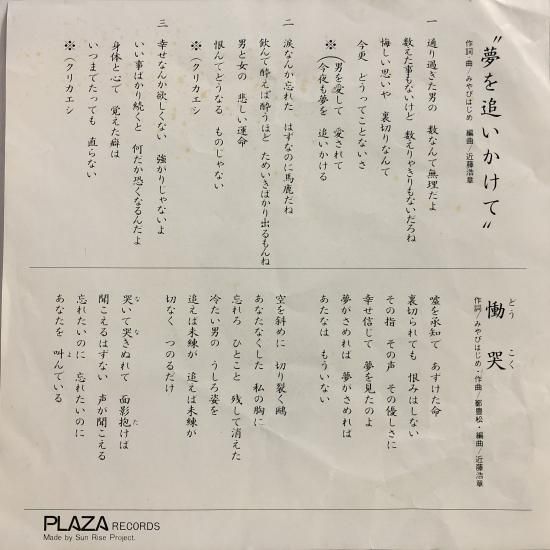 “夢を追いかけて”
作詞・曲/みやびはじめ 編曲/近藤浩章
一 通り過ぎた男の 数なんて無理だよ
数えた事もないけど 数えりゃきりもないだろね
悔しい思いや 裏切りなんて
今更 どうってことないさ
※(男を愛して 愛されて
今夜も夢を 追いかける
二 涙なんか忘れた はずなのに馬鹿だね
飲んで酔えば酔うほど ためいきばかり出るもんね
男と女の 悲しい運命
恨んてどうなる ものじゃない
※(クリカエシ
三 幸せなんか欲しくない 強がりじゃないよ
いい事ばかり続くと 何だか恐くなるんだよ
身体と心て 覚えた癖は
いつまでたっても 直らない
※(クリカエシ
慟哭
どうこく
作詞/みやびはじめ・作曲/都豊松・編曲/近藤浩章
嘘を承知で あずけた命
裏切られても 恨みはしない
その指 その声 その優しさに
幸せ信じて 夢を見たのよ
夢がさめれば 夢がさめれば
あたなは もういない
空を斜めに 切り裂く鴎
あなたなくした 私の胸に
忘れろ ひとこと 残して消えた
冷たい男の うしろ姿を
追えば未練が 追えば未練が
切なく つのるだけ
哭いて哭きぬれて 面影抱けば
な な た
聞こえるはずない 声が聞こえる
忘れたいのに 忘れたいのに
あなたを 叫んでいる
よ
PLAZA RECORDS
Made by Sun Rise Project.